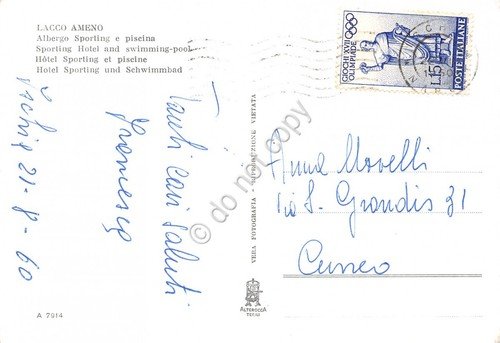 LACCO AMENO
Albergo Sporting e piscina
Sporting Hotel and swimming-pool
Hôtel Sporting et piscine
Hotel Sporting und Schwimmbad
Ischia 21-8-60
Tanti cari saluti
Francesco
A 7914
VERA FOTOGRAFIA - RIPRODUZIONE VIETATA
ALTEROCCA
TERNI
GIOCHI XVII OLIMPIADE
L.15
POSTE ITALIANE
Anna Morelli
Via S. Grandis 31
Cuneo
© do not copy